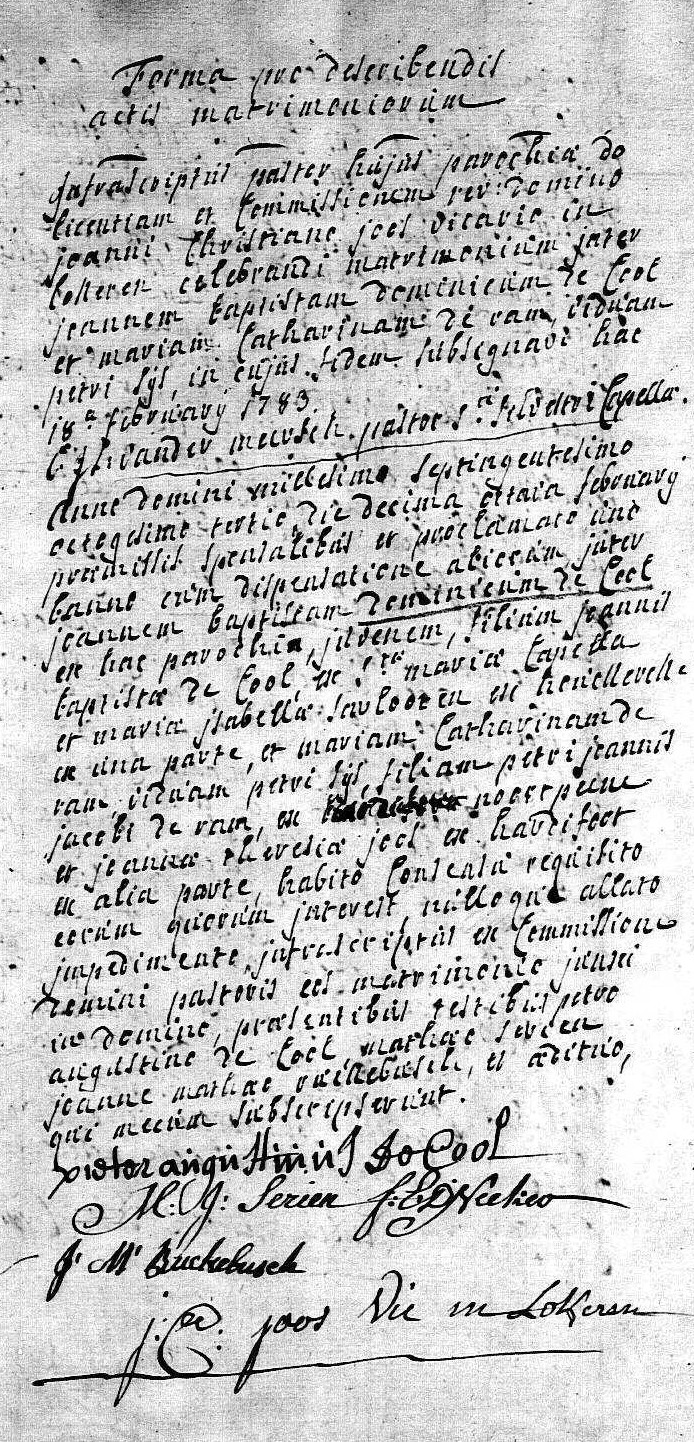 Forma pro describendis
actis matrimoniorum
Infrascriptus pastor hujus parochiæ do
licentiam et commissionem rev: domino
joanni Christiano joos vicario in
lokeren celebrandi matrimonium inter
joannem baptistam dominicum de Cool
et mariam Catharinam de ram, viduam
petri sys, in cujus fidem subsignavi hac
18.a februarij 1783
vander meersch pastor s.ti silvestri Capellæ.
Anno domini millesimo septingentesimo
octogesimo tertio, die decima octava februarij
præmissis sponsalibus et proclamato uno
banno cum dispensatione aliorum, inter
joannem baptistam dominicum de Cool
ex hac parochia, juvenem, filium joannis
baptistæ de Cool, ex s.ta mariæ Capella
et mariæ isabellæ
ex una parte, et mariam Catharinam de
ram, viduam petri sys, filiam petri joannis
jacobi de ram, ex noortpeene
et joannæ theresiæ joos ex hardifoot
ex alia parte, habito consensu requisito
eorum quorum interest, nulloque allato
impedimento, infrascriptus ex commissione
domini pastoris eos matrimonio junxi
in domino, præsentibus testibus petro
augustino de Cool, mathæo serien
joanne mathæo ruckebusch, et ædituo,
qui mecum subscripserunt.
pieter augustinus De Cool
M: J: Serien
J. M. Ruckebusch
j: C: joos Vic in Lokeren